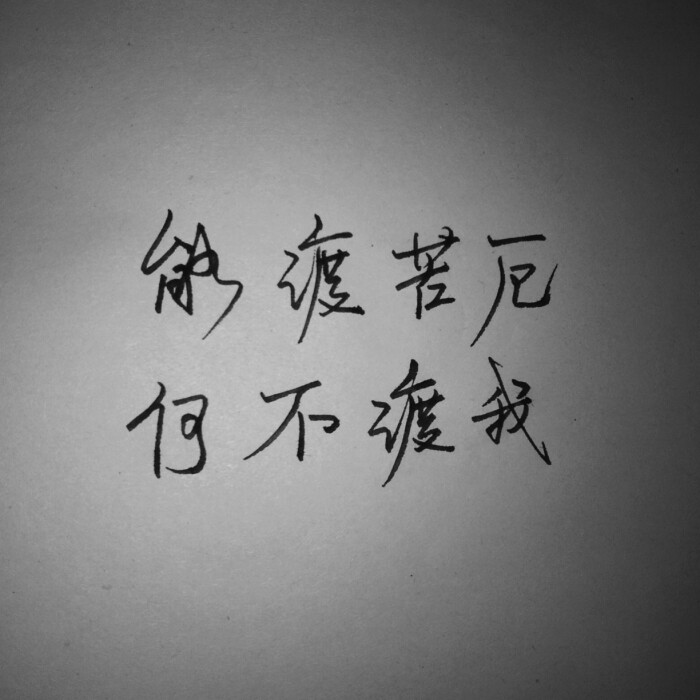 能渡苦厄
何不渡我